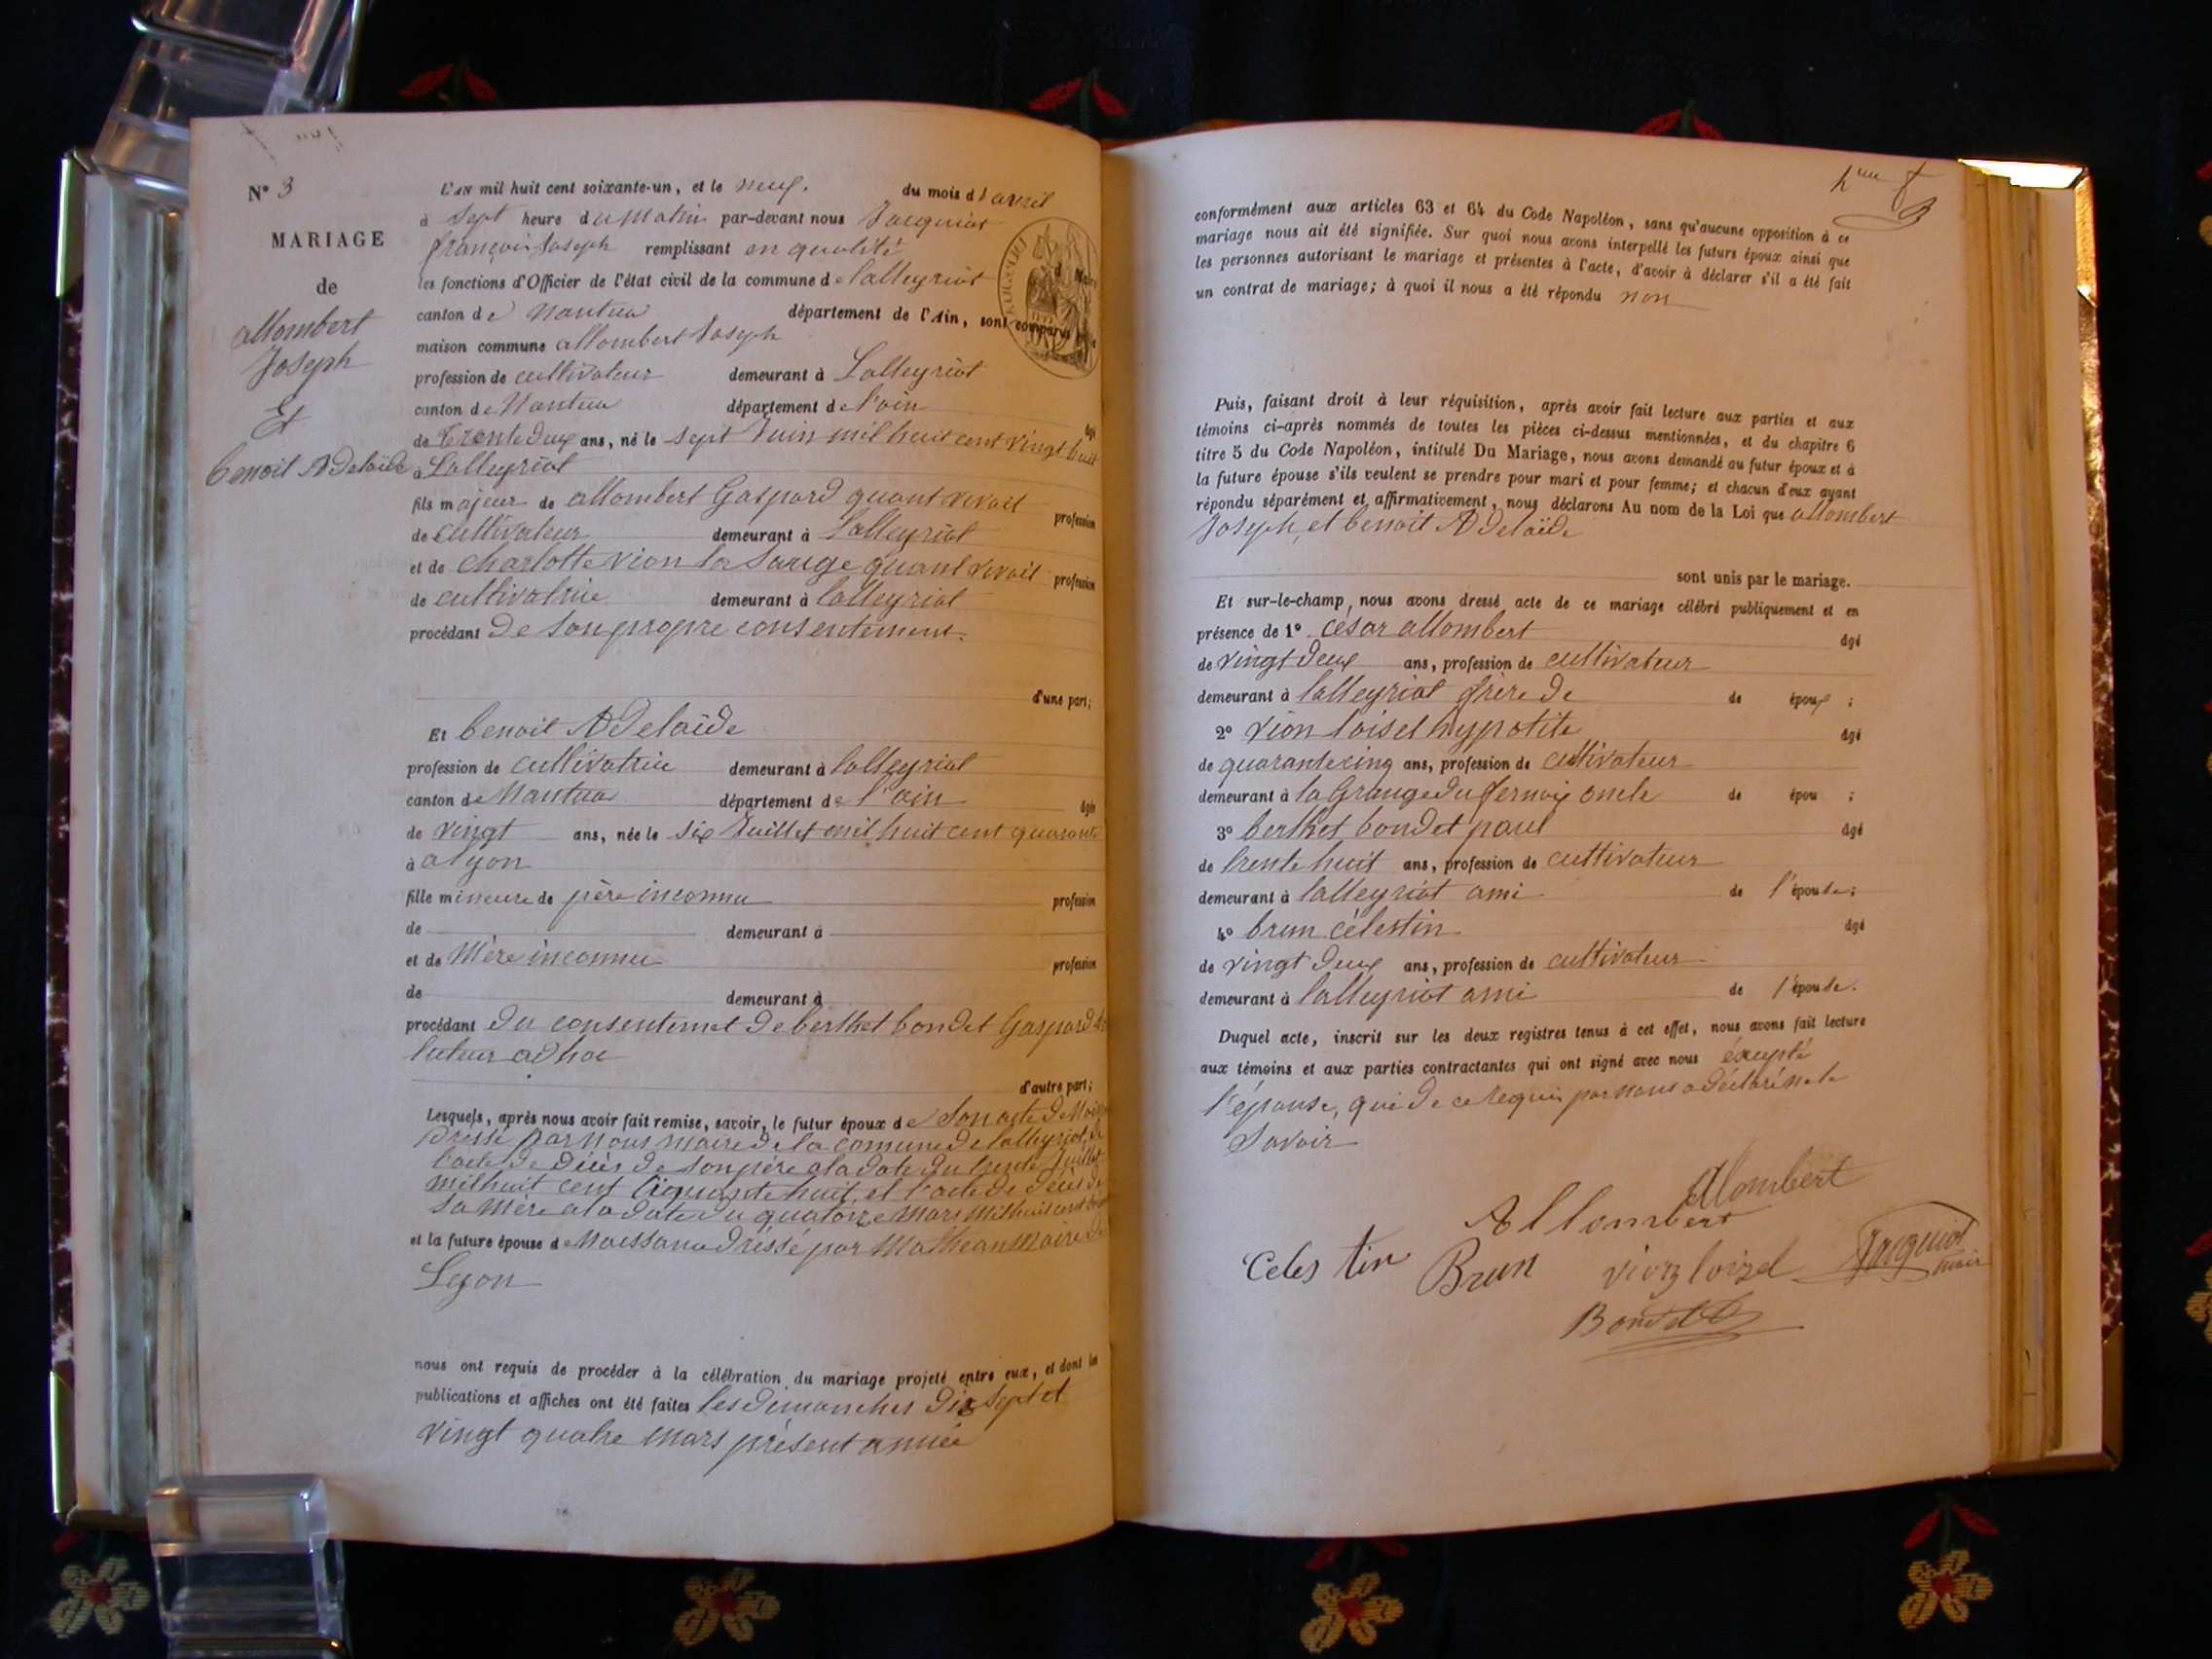 N° 3
MARIAGE
de
allombert
Joseph
Et
benoit Adelaïde
L'AN mil huit cent soixante-un, et le neuf. du mois d'avril
à sept heure du matin par-devant nous Jacquiot
françois Joseph remplissant en qualité
les fonctions d'Officier de l'état civil de la commune de lalleyriat
canton de Nantua département de l'Ain, sont comparus
maison commune allombert Joseph
profession de cultivateur demeurant à Lalleyriat
canton de Nantua département de l'ain
de trente deux ans, né le sept Juin mil huit cent vingt huit
à Lalleyriat
fils majeur de allombert Gaspard quant vivait profession
de cultivateur demeurant à Lalleyriat
et de charlotte vion la Sauge quant vivait profession
de cultivatrice demeurant à lalleyriat
procédant de son propre consentement.
d'une part;
Et benoit Adelaïde
profession de cultivatrice demeurant à lalleyriat
canton de Nantua département de l'ain âgée
de vingt ans, née le six Juillet mil huit cent quarante
à a lyon
fille mineure de père inconnu profession
de demeurant à
et de Mère inconnu profession
de demeurant à
procédant du consentemet de berthet bondet Gaspard
tuteur adhoc
d'autre part;
Lesquels, après nous avoir fait remise, savoir, le futur époux de son acte de
dressé par Nous maire de la comune de lalleyriat, de
l'acte de décès de son père a la date du trente Juillet
mil huit cent ciquante huit, et l'acte de décès de
sa mère a la date du quatorze mars mil huit cent
et la future épouse de Naissance dréssé par Mathean Maire de
Lyon
nous ont requis de procéder à la célébration du mariage projeté entre eux, et dont les
publications et affiches ont été faites les dimanches dix sept et
vingt quatre mars présent année
conformément aux articles 63 et 64 du Code Napoléon, sans qu'aucune opposition à ce
mariage nous ait été signifiée. Sur quoi nous avons interpellé les futurs époux ainsi que
les personnes autorisant le mariage et présentes à l'acte, d'avoir à déclarer s'il a été fait
un contrat de mariage; à quoi il nous a été répondu non
Puis, faisant droit à leur réquisition, après avoir fait lecture aux parties et aux
témoins ci-après nommés de toutes les pièces ci-dessus mentionnées, et du chapitre 6
titre 5 du Code Napoléon, intitulé Du Mariage, nous avons demandé au futur époux et à
la future épouse s'ils veulent se prendre pour mari et pour femme; et chacun d'eux ayant
répondu séparément et affirmativement, nous déclarons Au nom de la Loi que allombert
Joseph, et benoit Adelaïde
sont unis par le mariage.
Et sur-le-champ, nous avons dressé acte de ce mariage célébré publiquement et en
présence de 1° césar allombert âgé
de vingt deux ans, profession de cultivateur
demeurant à lalleyriat frère de de époux ;
2° vion loisel hypolite âgé
de quarante cinq ans, profession de cultivateur
demeurant à la Grange du fernoix oncle de épou ;
3° berthet bondet paul âgé
de trente huit ans, profession de cultivateur
demeurant à lalleyriat ami de l'épouse;
4° brun célestin âgé
de vingt deux ans, profession de cultivateur
demeurant à lalleyriat ami de l'épouse.
Duquel acte, inscrit sur les deux registres tenus à cet effet, nous avons fait lecture
aux témoins et aux parties contractantes qui ont signé avec nous éxcepté
l'épouse, qui de ce requis par nous a déclaré ne le
Savoir
Alombert
Allombert
Celestin Brun vion loizel Jacquiot
maire
Bondet